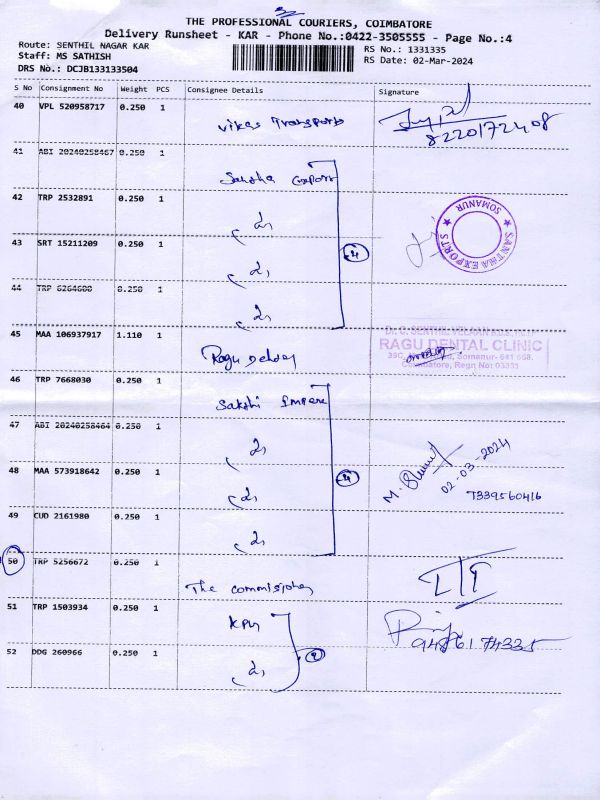 THE PROFESSIONAL COURIERS, COIMBATORE
Delivery Runsheet - KAR - Phone No.:0422-3505555 - Page No.:4
Route: SENTHIL NAGAR KAR
RS No.: 1331335
Staff: MS SATHISH
RS Date: 02-Mar-2024
DRS No.: DCJB133133504
S No Consignment No Weight PCS Consignee Details Signature
40 VPL 520958717 0.250 1
Vikas Transports
8220172408
41 ABI 20240258467 0.250 1
Santha Export
42 TRP 2532891 0.250 1
SANTHA EXPORTS
SOMANUR
43 SRT 15211209 0.250 1
4
44 TRP 6264688 0.250 1
45 MAA 106937917 1.110 1
RAGU DENTAL CLINIC
Somanur- 641 668.
Coimbatore, Regn No: 03331
Ragu Dental
46 TRP 7668030 0.250 1
Sakthi Impex
47 ABI 20240258464 0.250 1
02-03-2024
48 MAA 573918642 0.250 1
4
7339560416
49 CUD 2161980 0.250 1
50 TRP 5256672 0.250 1
The commissioner
51 TRP 1503934 0.250 1
KPN
9486174335
52 DDG 260966 0.250 1
2